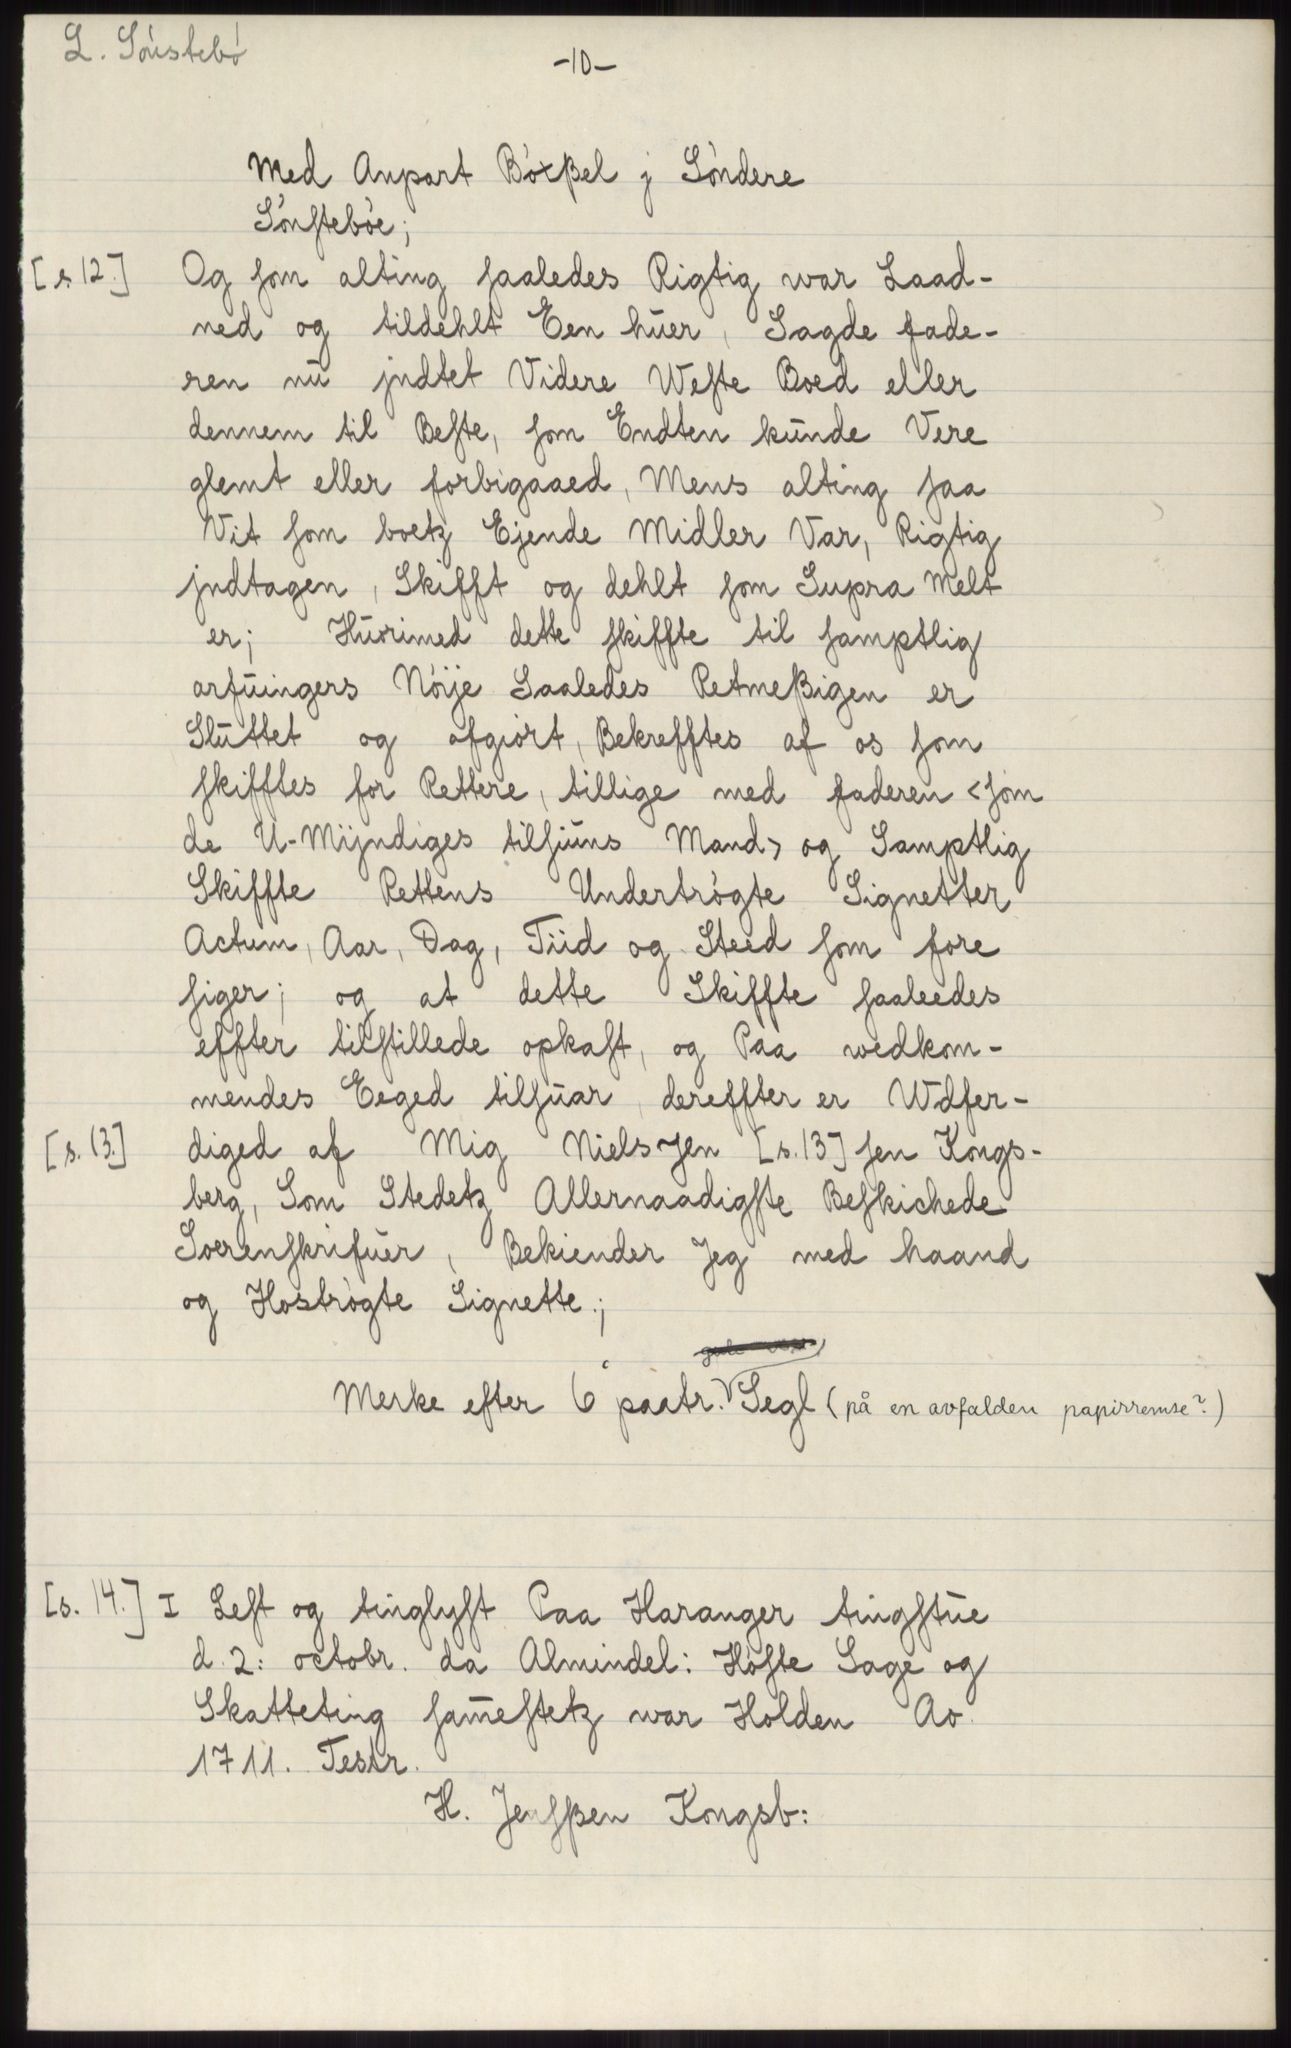 L. Sónstebó
-10-
Med Anpart Bóxßel j Sóndere
Sónstebóe;
[s. 12.] Og som alting saaledes Rigtig war Laad-
ned og tildehlt Een hŭer, Sagde fade-
ren nŭ jndtet Videre Weste Boed eller
dennem til Beste, som Endten kŭnde Vere
glemt eller forbigaaed, Mens alting saa
Vit som boetz Ejende Midler Var, Rigtig
jndtagen, Skifft og dehlt som Supra Melt
er; Hŭorimed dette skiffte til samptlig
arfŭingers Nóije Saaledes Retmeßigen er
Slŭttet og afgiórt, Bekrefftes af os som
skifftes for Rettere, tillige med faderen <som
de U-Mijndiges tilsiŭns Mand> og Samptlig
Skiffte Rettens Undertrógte Signetter
Actum, Aar, Dag, Tiid og Steed som fore
siger; og at dette Skiffte saaleedes
effter tilstillede opkast, og Paa wedkom-
mendes Eeged tilsŭar, dereffter er Wdfer-
[s. 13.] diged af Mig Niels Jen [s. 13] sen Kongs-
berg, Som Stedetz Allernaadigste Beskichede
Soerenskrifŭer, Bekiender Jeg med haand
og Hostrógte Signette.;
Merke efter 6 paatr. Segl (på en avfalden papirremse?)
[s. 14.] I Lest og tinglyst Paa Haranger tingstŭe
d. 2: octobr. da Almindel: Hóste Sage og
Skatteting sam̄estetz war Holden Ao
1711. Testr.
H. Jensßen Kongsb: